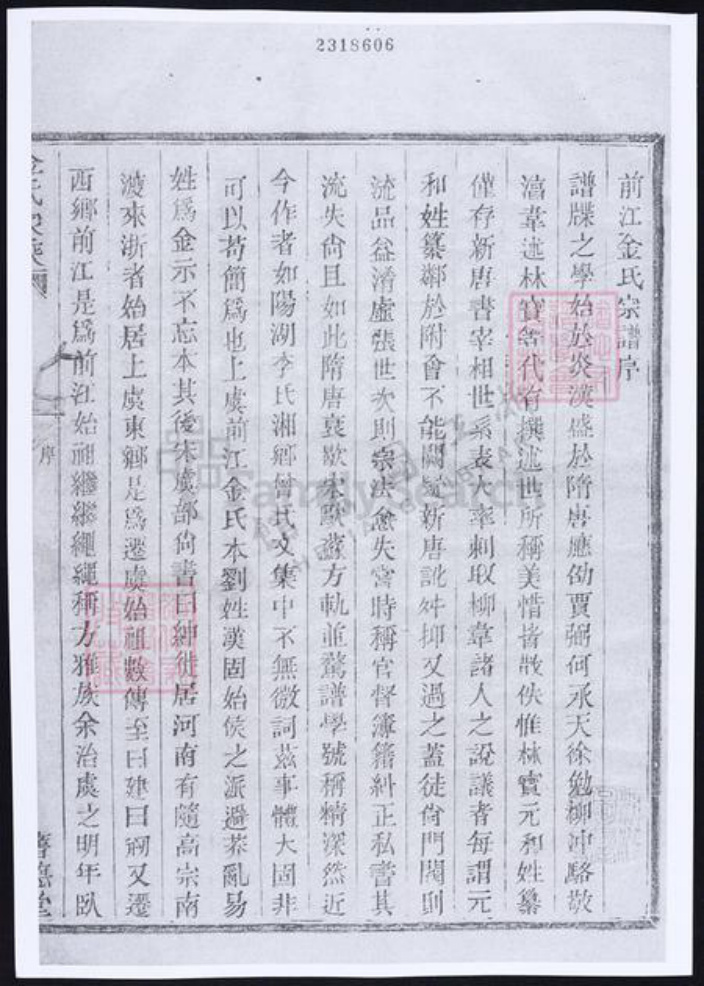 2318606
前江金氏宗譜序
譜牒之學始於炎漢盛於隋唐應劭賈弼何承天徐勉柳冲駱敬
韋述林寶等代有撰述世所稱美惜皆散佚惟林寶元和姓纂
僅存新唐書宰相世系表大率刺取柳韋諸人之說議者每謂元
和姓纂鄰於附會不能闕疑新唐訛舛抑又過之蓋徒尙門閥則
流品益淆虛張世次則宗法愈失當時稱官督簿籍糾正私書其
流失尙且如此隋唐衰歇宋歐蘇方軌並騖譜學號稱精深然近
今作者如陽湖李氏湘鄉曾氏文集中不無微詞茲事體大固非
可以苟簡爲也上虞前江金氏本劉姓漢固始侯之派避莽亂易
姓爲金示不忘本其後宋虞部尙書曰紳徙居河南有隨高宗南
渡來浙者始居上虞東鄉是爲遷虞始祖數傳至曰建曰 又遷
西鄉前江是爲前江始祖繼繼繩繩稱方雅族余治虞之明年臥
序
FamilySearch